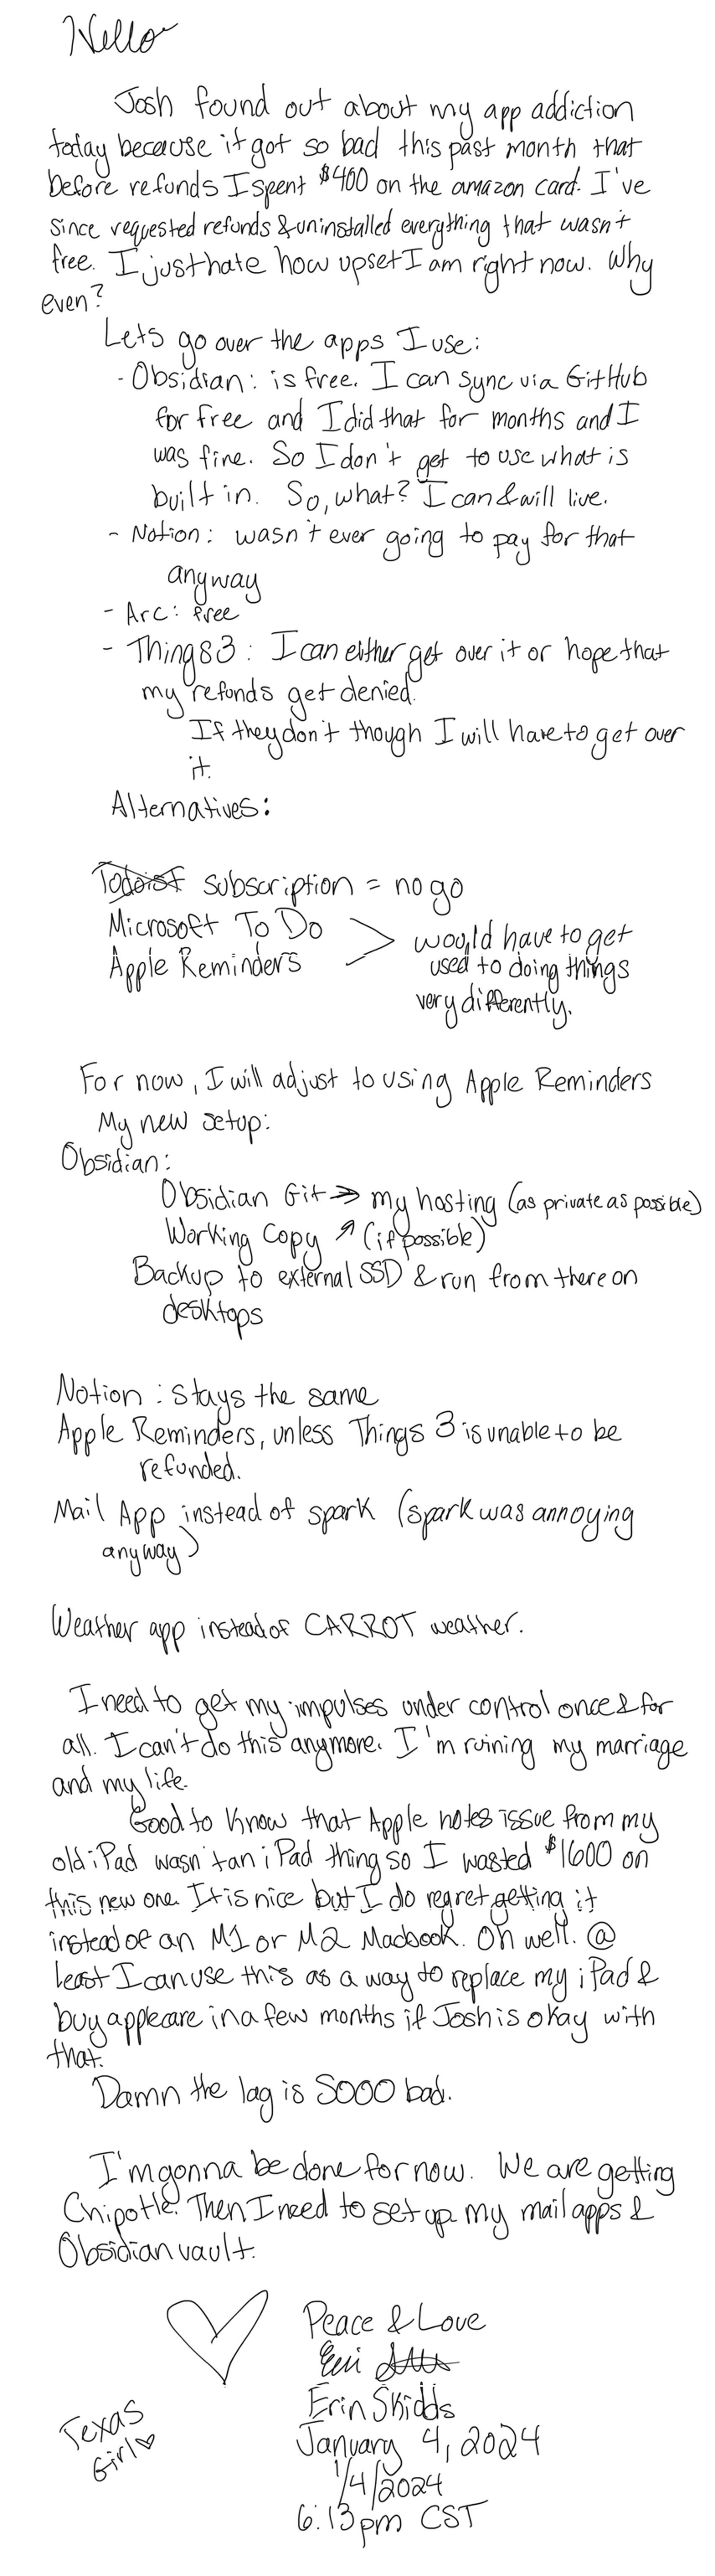 Hello
Josh found out about my app addiction
today because it got so bad this past month that
before refunds I spent $400 on the amazon card. I've
since requested refunds & uninstalled everything that wasn't
free. I just hate how upset I am right now. Why
even?
Lets go over the apps I use:
- Obsidian: is free. I can sync via GitHub
for free and I did that for months and I
was fine. So I don't get to use what is
built in. So, what? I can & will live.
- Notion: wasn't ever going to pay for that
anyway
- Arc: free
- Things 3: I can either get over it or hope that
my refunds get denied.
If they don't though I will have to get over
it.
Alternatives:
Todoist subscription = no go
Microsoft To Do > would have to get
Apple Reminders used to doing things
very differently.
For now, I will adjust to using Apple Reminders
My new setup:
Obsidian:
Obsidian Git → my hosting (as private as possible)
Working Copy ↗ (if possible)
Backup to external SSD & run from there on
desktops
Notion: stays the same
Apple Reminders, unless Things 3 is unable to be
refunded.
Mail App instead of spark (spark was annoying
anyway)
Weather app instead of CARROT weather.
I need to get my impulses under control once & for
all. I can't do this anymore. I'm ruining my marriage
and my life.
Good to know that Apple notes issue from my
old iPad wasn't an iPad thing so I wasted $1600 on
this new one. It is nice but I do regret getting it
instead of an M1 or M2 Macbook. Oh well. @
least I can use this as a way to replace my iPad &
buy applecare in a few months if Josh is okay with
that.
Damn the lag is SOOO bad.
I'm gonna be done for now. We are getting
Chipotle. Then I need to set up my mail apps &
Obsidian vault.
Peace & Love
Erin Skidds
January 4, 2024
1/4/2024
6:13pm CST
Texas
Girl♡